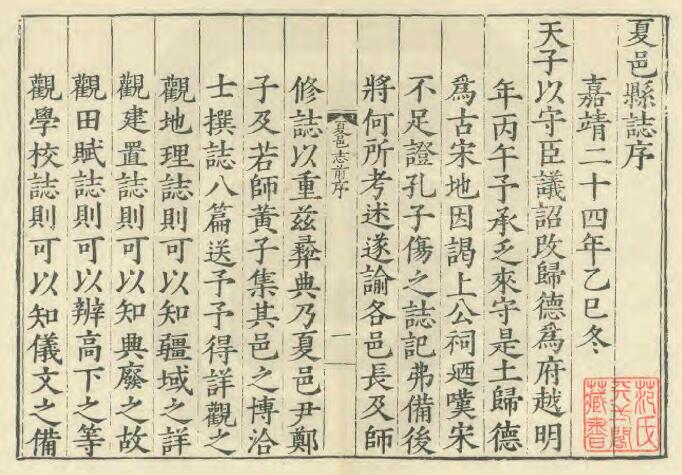 夏邑縣誌序
嘉靖二十四年乙巳冬
天子以守臣議詔改歸德爲府越明
年丙午予承乏來守是土歸德
爲古宋地因謁上公祠廼嘆宋
不足證孔子傷之誌記弗備後
將何所考述遂諭各邑長及師
夏邑志前序
一
修誌以重兹彝典乃夏邑尹鄭
子及若師黃子集其邑之博洽
士撰誌八篇送予予得詳觀之
觀地理誌則可以知疆域之詳
觀建置誌則可以知典廢之故
觀田賦誌則可以辨高下之等
觀學校誌則可以知儀文之備
范氏
天一閣
藏書